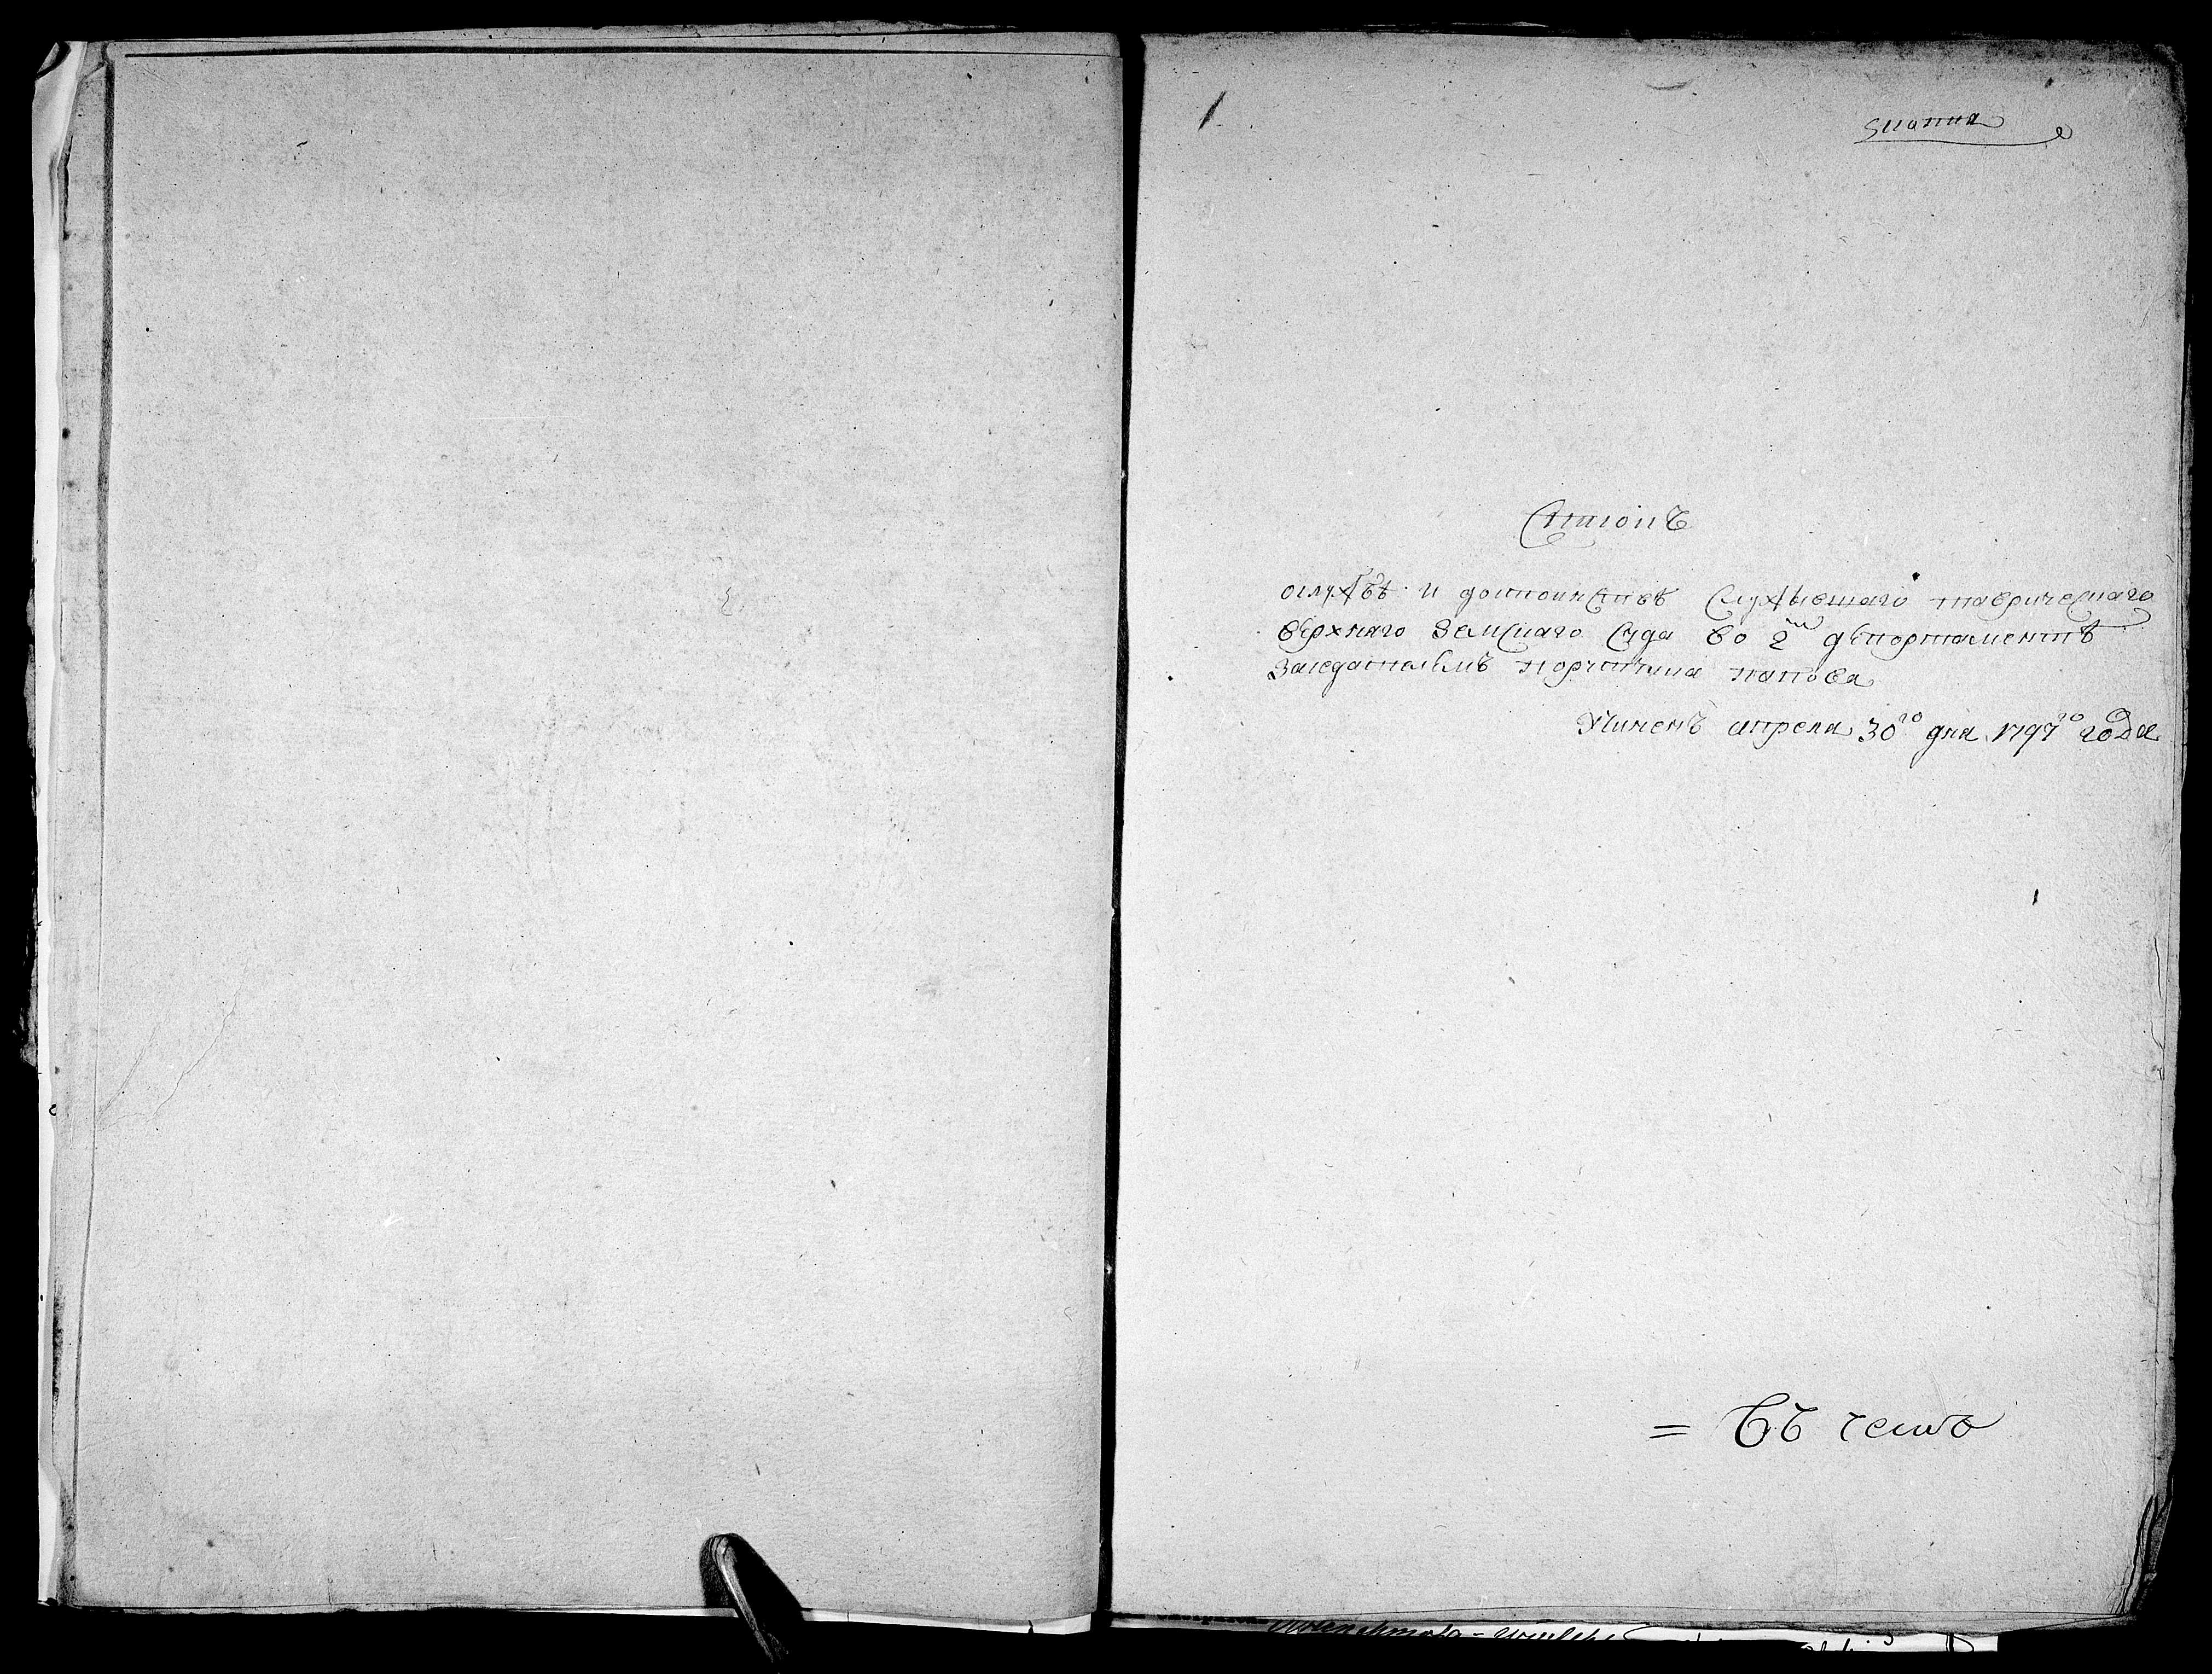 копия
Списокъ
ослужбѣ и достоинствѣ Служившаго таврическаго
верхняго Земскаго Суда во 2м департаментѣ
Заседателемъ порутчика папова
Учиненъ апреля 30го дня 1797го года
= Въ чемъ